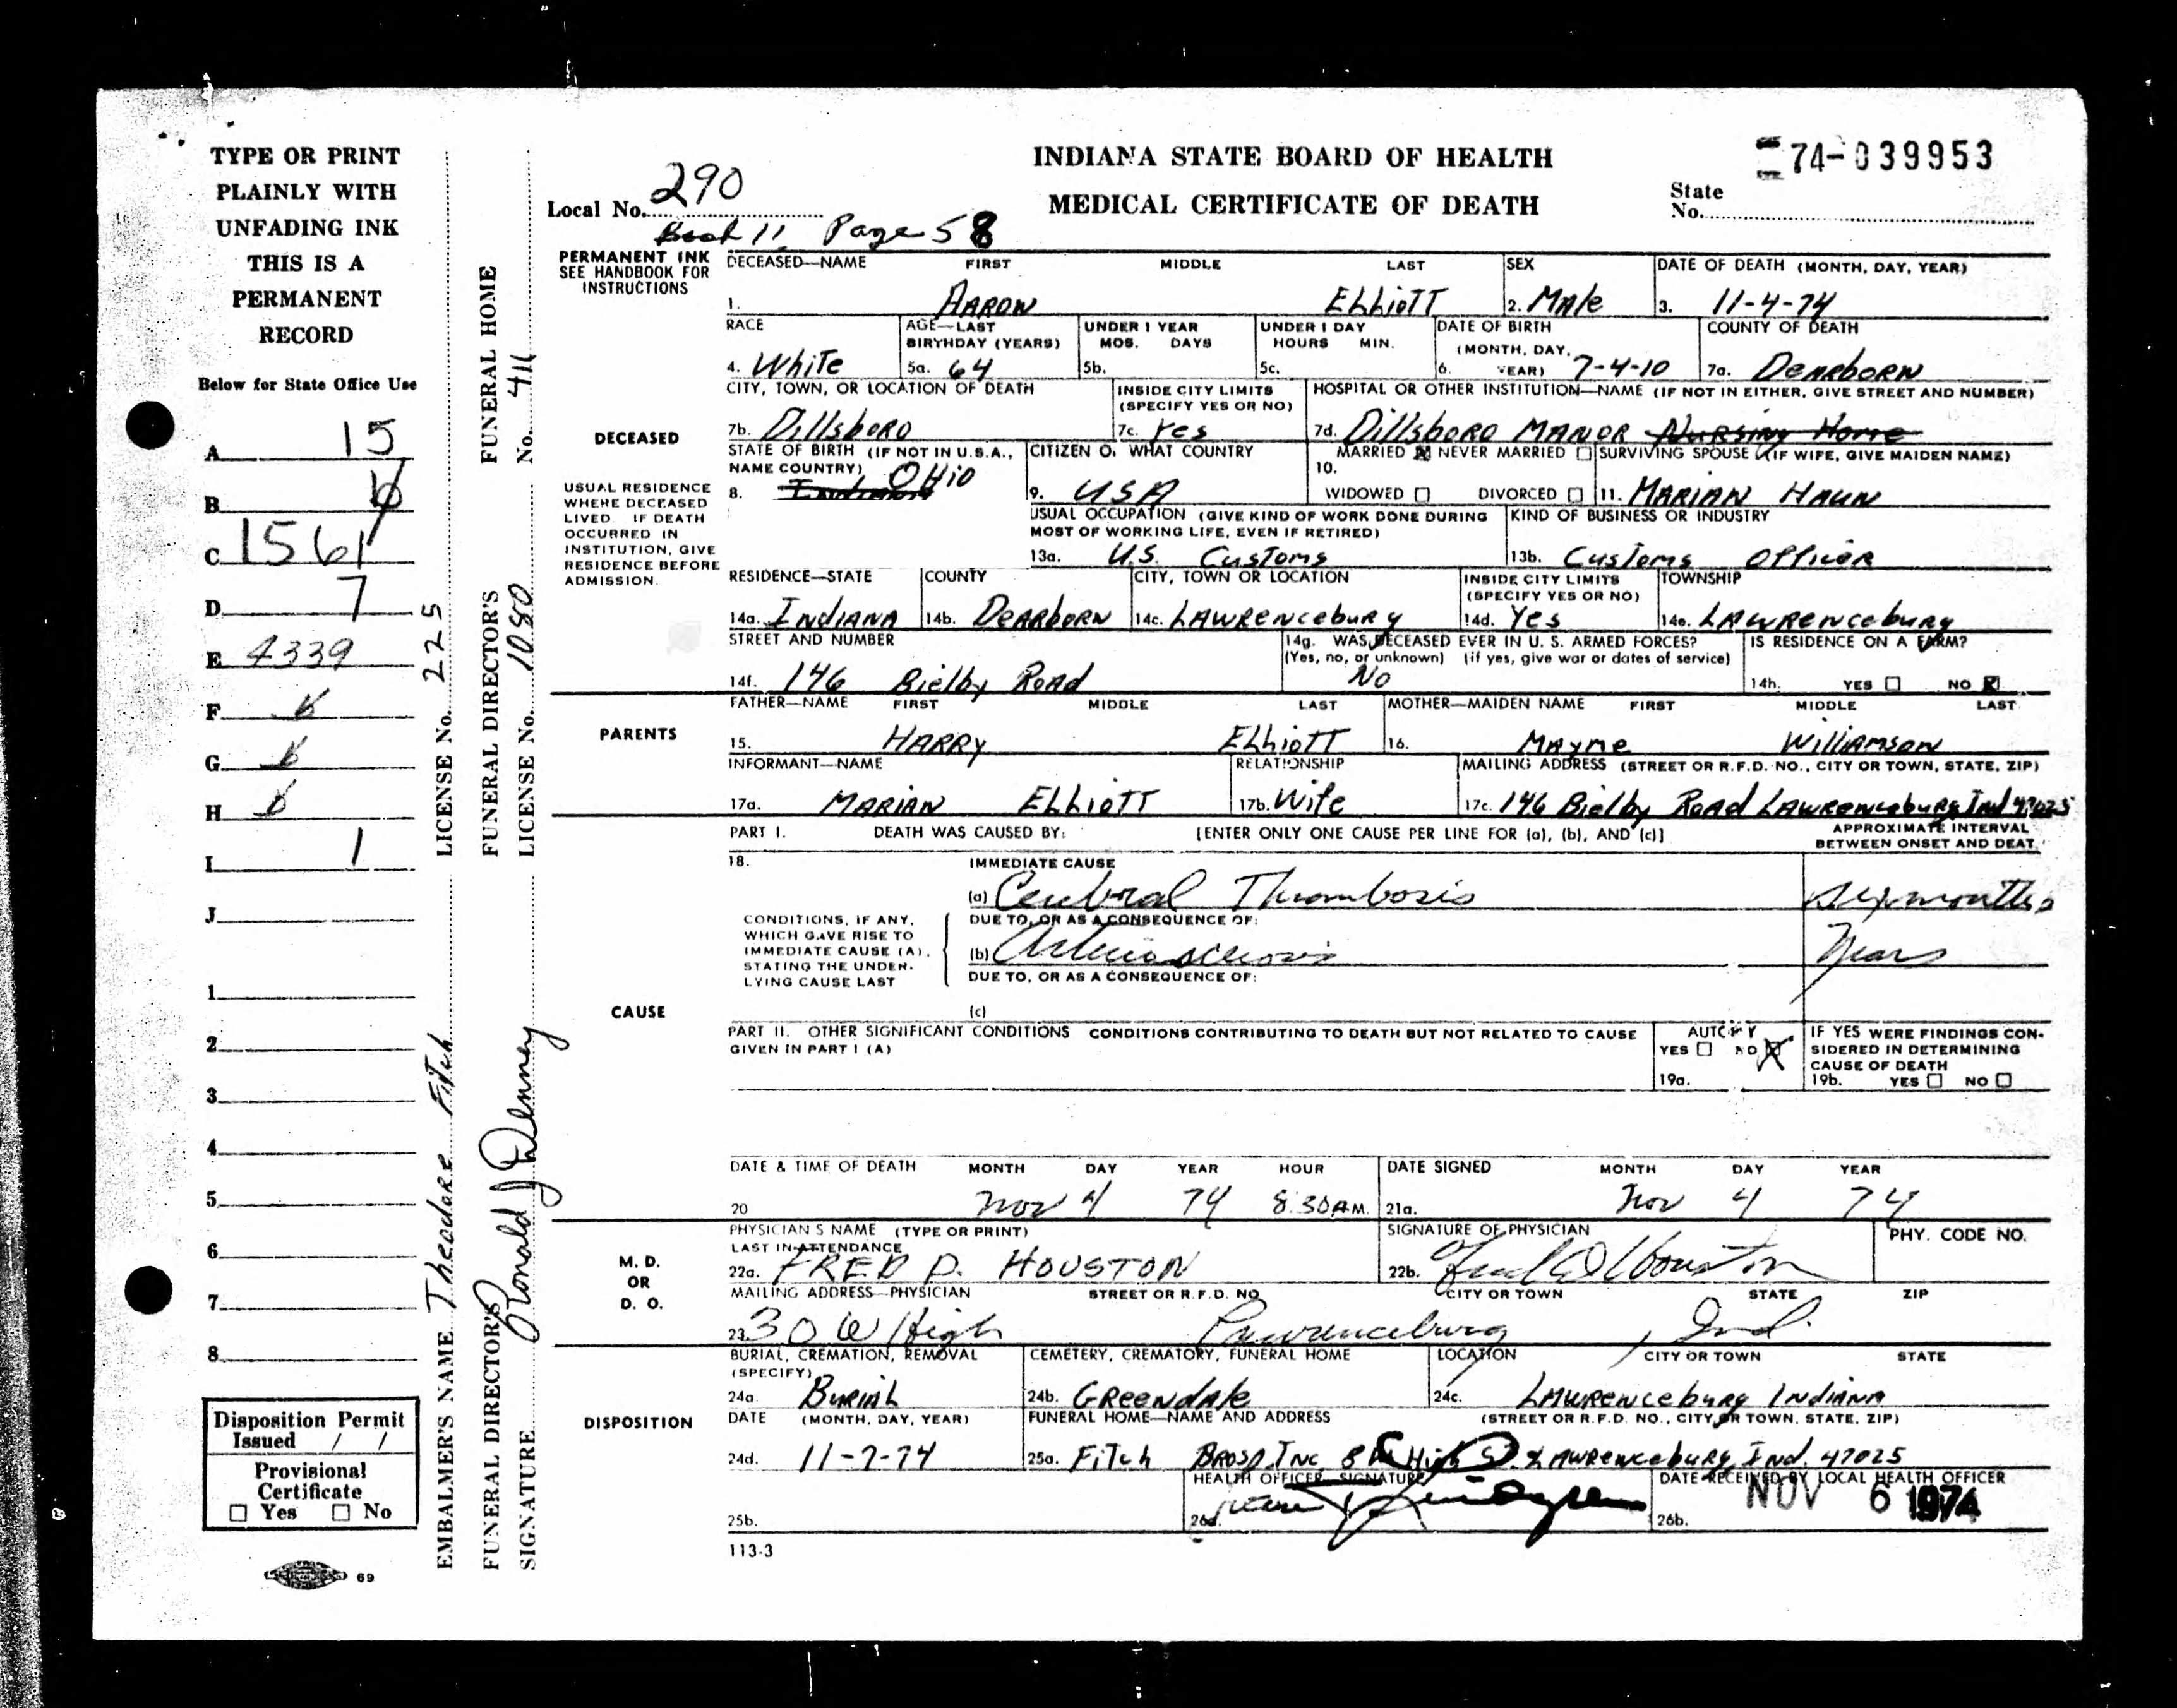 TYPE OR PRINT
PLAINLY WITH
UNFADING INK
THIS IS A
PERMANENT
RECORD
Below for State Office Use
A 15
B
C 1561
D 7
E 4339
F
G
H
I 1
J
1
2
3
4
5
6
7
8
Disposition Permit
Issued / /
Provisional
Certificate
☐ Yes ☐ No
69
EMBALMER'S NAME Theodore Fitch LICENSE No. 225
FUNERAL DIRECTOR'S FUNERAL DIRECTOR'S FUNERAL HOME
SIGNATURE Ronald J Denney LICENSE No. 1080 No. 411
INDIANA STATE BOARD OF HEALTH
MEDICAL CERTIFICATE OF DEATH
74-039953
State
No.
Local No. 290
Book 11, Page 58
PERMANENT INK
SEE HANDBOOK FOR
INSTRUCTIONS
DECEASED—NAME FIRST MIDDLE LAST SEX DATE OF DEATH (MONTH, DAY, YEAR)
1. AARON ELLIOTT 2. MAle 3. 11-4-74
RACE AGE—LAST BIRTHDAY (YEARS) UNDER 1 YEAR MOS. DAYS UNDER 1 DAY HOURS MIN. DATE OF BIRTH (MONTH, DAY, YEAR) COUNTY OF DEATH
4. White 5a. 64 5b. 5c. 6. 7-4-10 7a. DEARBORN
CITY, TOWN, OR LOCATION OF DEATH INSIDE CITY LIMITS (SPECIFY YES OR NO) HOSPITAL OR OTHER INSTITUTION—NAME (IF NOT IN EITHER, GIVE STREET AND NUMBER)
DECEASED
7b. Dillsboro 7c. Yes 7d. Dillsboro MANOR Nursing Home
STATE OF BIRTH (IF NOT IN U.S.A., NAME COUNTRY) CITIZEN OF WHAT COUNTRY MARRIED ☒ NEVER MARRIED ☐ SURVIVING SPOUSE (IF WIFE, GIVE MAIDEN NAME)
8. Indiana Ohio 9. USA 10. WIDOWED ☐ DIVORCED ☐ 11. MARIAN HAUN
USUAL RESIDENCE
WHERE DECEASED
LIVED. IF DEATH
OCCURRED IN
INSTITUTION, GIVE
RESIDENCE BEFORE
ADMISSION.
USUAL OCCUPATION (GIVE KIND OF WORK DONE DURING MOST OF WORKING LIFE, EVEN IF RETIRED) KIND OF BUSINESS OR INDUSTRY
13a. U.S. Customs 13b. Customs Officer
RESIDENCE—STATE COUNTY CITY, TOWN OR LOCATION INSIDE CITY LIMITS (SPECIFY YES OR NO) TOWNSHIP
14a. INDIANA 14b. DEARBORN 14c. LAWRENCEburg 14d. Yes 14e. LAWRENCEburg
STREET AND NUMBER 14g. WAS DECEASED EVER IN U. S. ARMED FORCES? (Yes, no, or unknown) (if yes, give war or dates of service) IS RESIDENCE ON A FARM?
14f. 146 Bielby Road No 14h. YES ☐ NO ☒
PARENTS
FATHER—NAME FIRST MIDDLE LAST MOTHER—MAIDEN NAME FIRST MIDDLE LAST
15. HARRY ELLIOTT 16. MAYME WILLIAMSON
INFORMANT—NAME RELATIONSHIP MAILING ADDRESS (STREET OR R.F.D. NO., CITY OR TOWN, STATE, ZIP)
17a. MARIAN ELLIOTT 17b. Wife 17c. 146 Bielby Road LAWRENCEburg Ind 47025
PART I. DEATH WAS CAUSED BY: [ENTER ONLY ONE CAUSE PER LINE FOR (a), (b), AND (c)] APPROXIMATE INTERVAL BETWEEN ONSET AND DEAT
CAUSE
18. IMMEDIATE CAUSE
(a) Cerebral Thrombosis six months
CONDITIONS, IF ANY,
WHICH GAVE RISE TO
IMMEDIATE CAUSE (A),
STATING THE UNDER-
LYING CAUSE LAST
DUE TO, OR AS A CONSEQUENCE OF:
(b) Arteriosclerosis Years
DUE TO, OR AS A CONSEQUENCE OF:
(c)
PART II. OTHER SIGNIFICANT CONDITIONS CONDITIONS CONTRIBUTING TO DEATH BUT NOT RELATED TO CAUSE GIVEN IN PART I (A)
AUTOPSY YES ☐ NO ☒ 19a.
IF YES WERE FINDINGS CON-
SIDERED IN DETERMINING
CAUSE OF DEATH
19b. YES ☐ NO ☐
DATE & TIME OF DEATH MONTH DAY YEAR HOUR DATE SIGNED MONTH DAY YEAR
20 Nov 4 74 8:30 A M. 21a. Nov 4 74
M. D.
OR
D. O.
PHYSICIAN'S NAME (TYPE OR PRINT) LAST IN ATTENDANCE SIGNATURE OF PHYSICIAN PHY. CODE NO.
22a. FRED D. HOUSTON 22b. Fred D Houston
MAILING ADDRESS—PHYSICIAN STREET OR R.F.D. NO. CITY OR TOWN STATE ZIP
23. 30 W High Lawrenceburg, Ind.
DISPOSITION
BURIAL, CREMATION, REMOVAL (SPECIFY) CEMETERY, CREMATORY, FUNERAL HOME LOCATION CITY OR TOWN STATE
24a. BURIAL 24b. GREENDALE 24c. LAWRENCEburg INDIANA
DATE (MONTH, DAY, YEAR) FUNERAL HOME—NAME AND ADDRESS (STREET OR R.F.D. NO., CITY OR TOWN, STATE, ZIP)
24d. 11-7-74 25a. Fitch Bros, Inc. High St. LAWRENCEburg, Ind. 47025
HEALTH OFFICER SIGNATURE DATE RECEIVED BY LOCAL HEALTH OFFICER
25b. 26a. 26b. NOV 6 1974
113-3